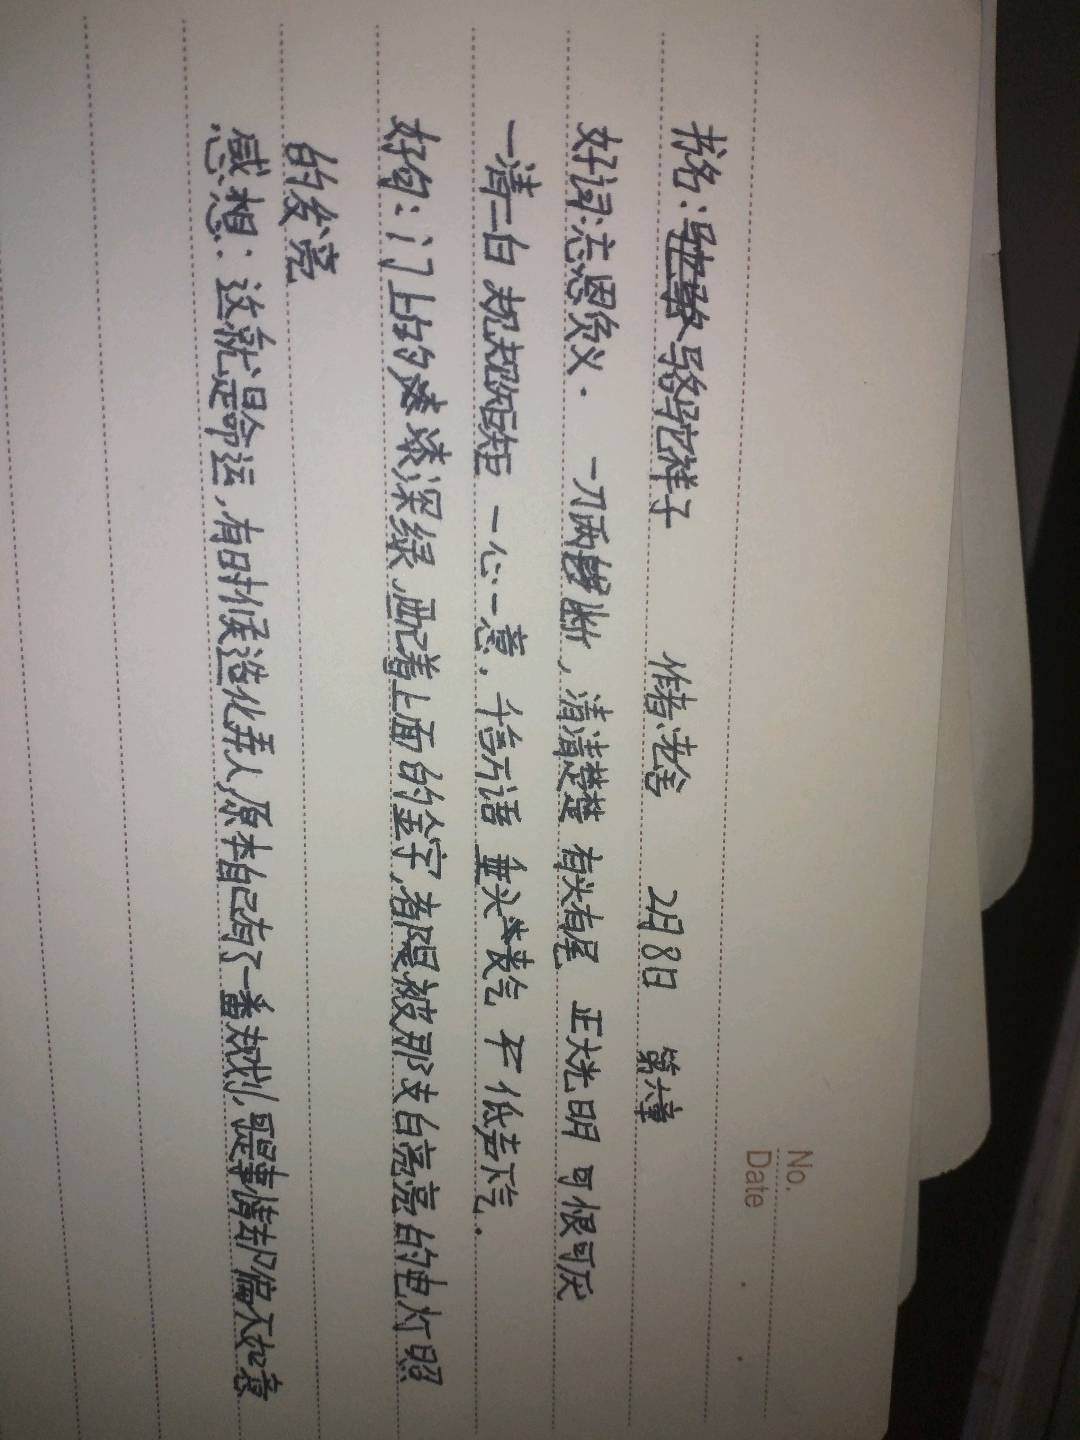 No.
Date
书名：骆驼祥子 作者：老舍 2月8日 第六章
好词：忘恩负义． 一刀两断，清清楚楚 有头有尾 正大光明 可恨可厌
一清二白 规规矩矩 一心一意．千言万语 垂头丧气 不低声下气．
好句：门上的漆深绿，配着上面的金字，都被那支白亮亮的电灯照
的发亮
感想：这就是命运，有时候造化弄人，原本自己有了一番规划，事情却偏不如意